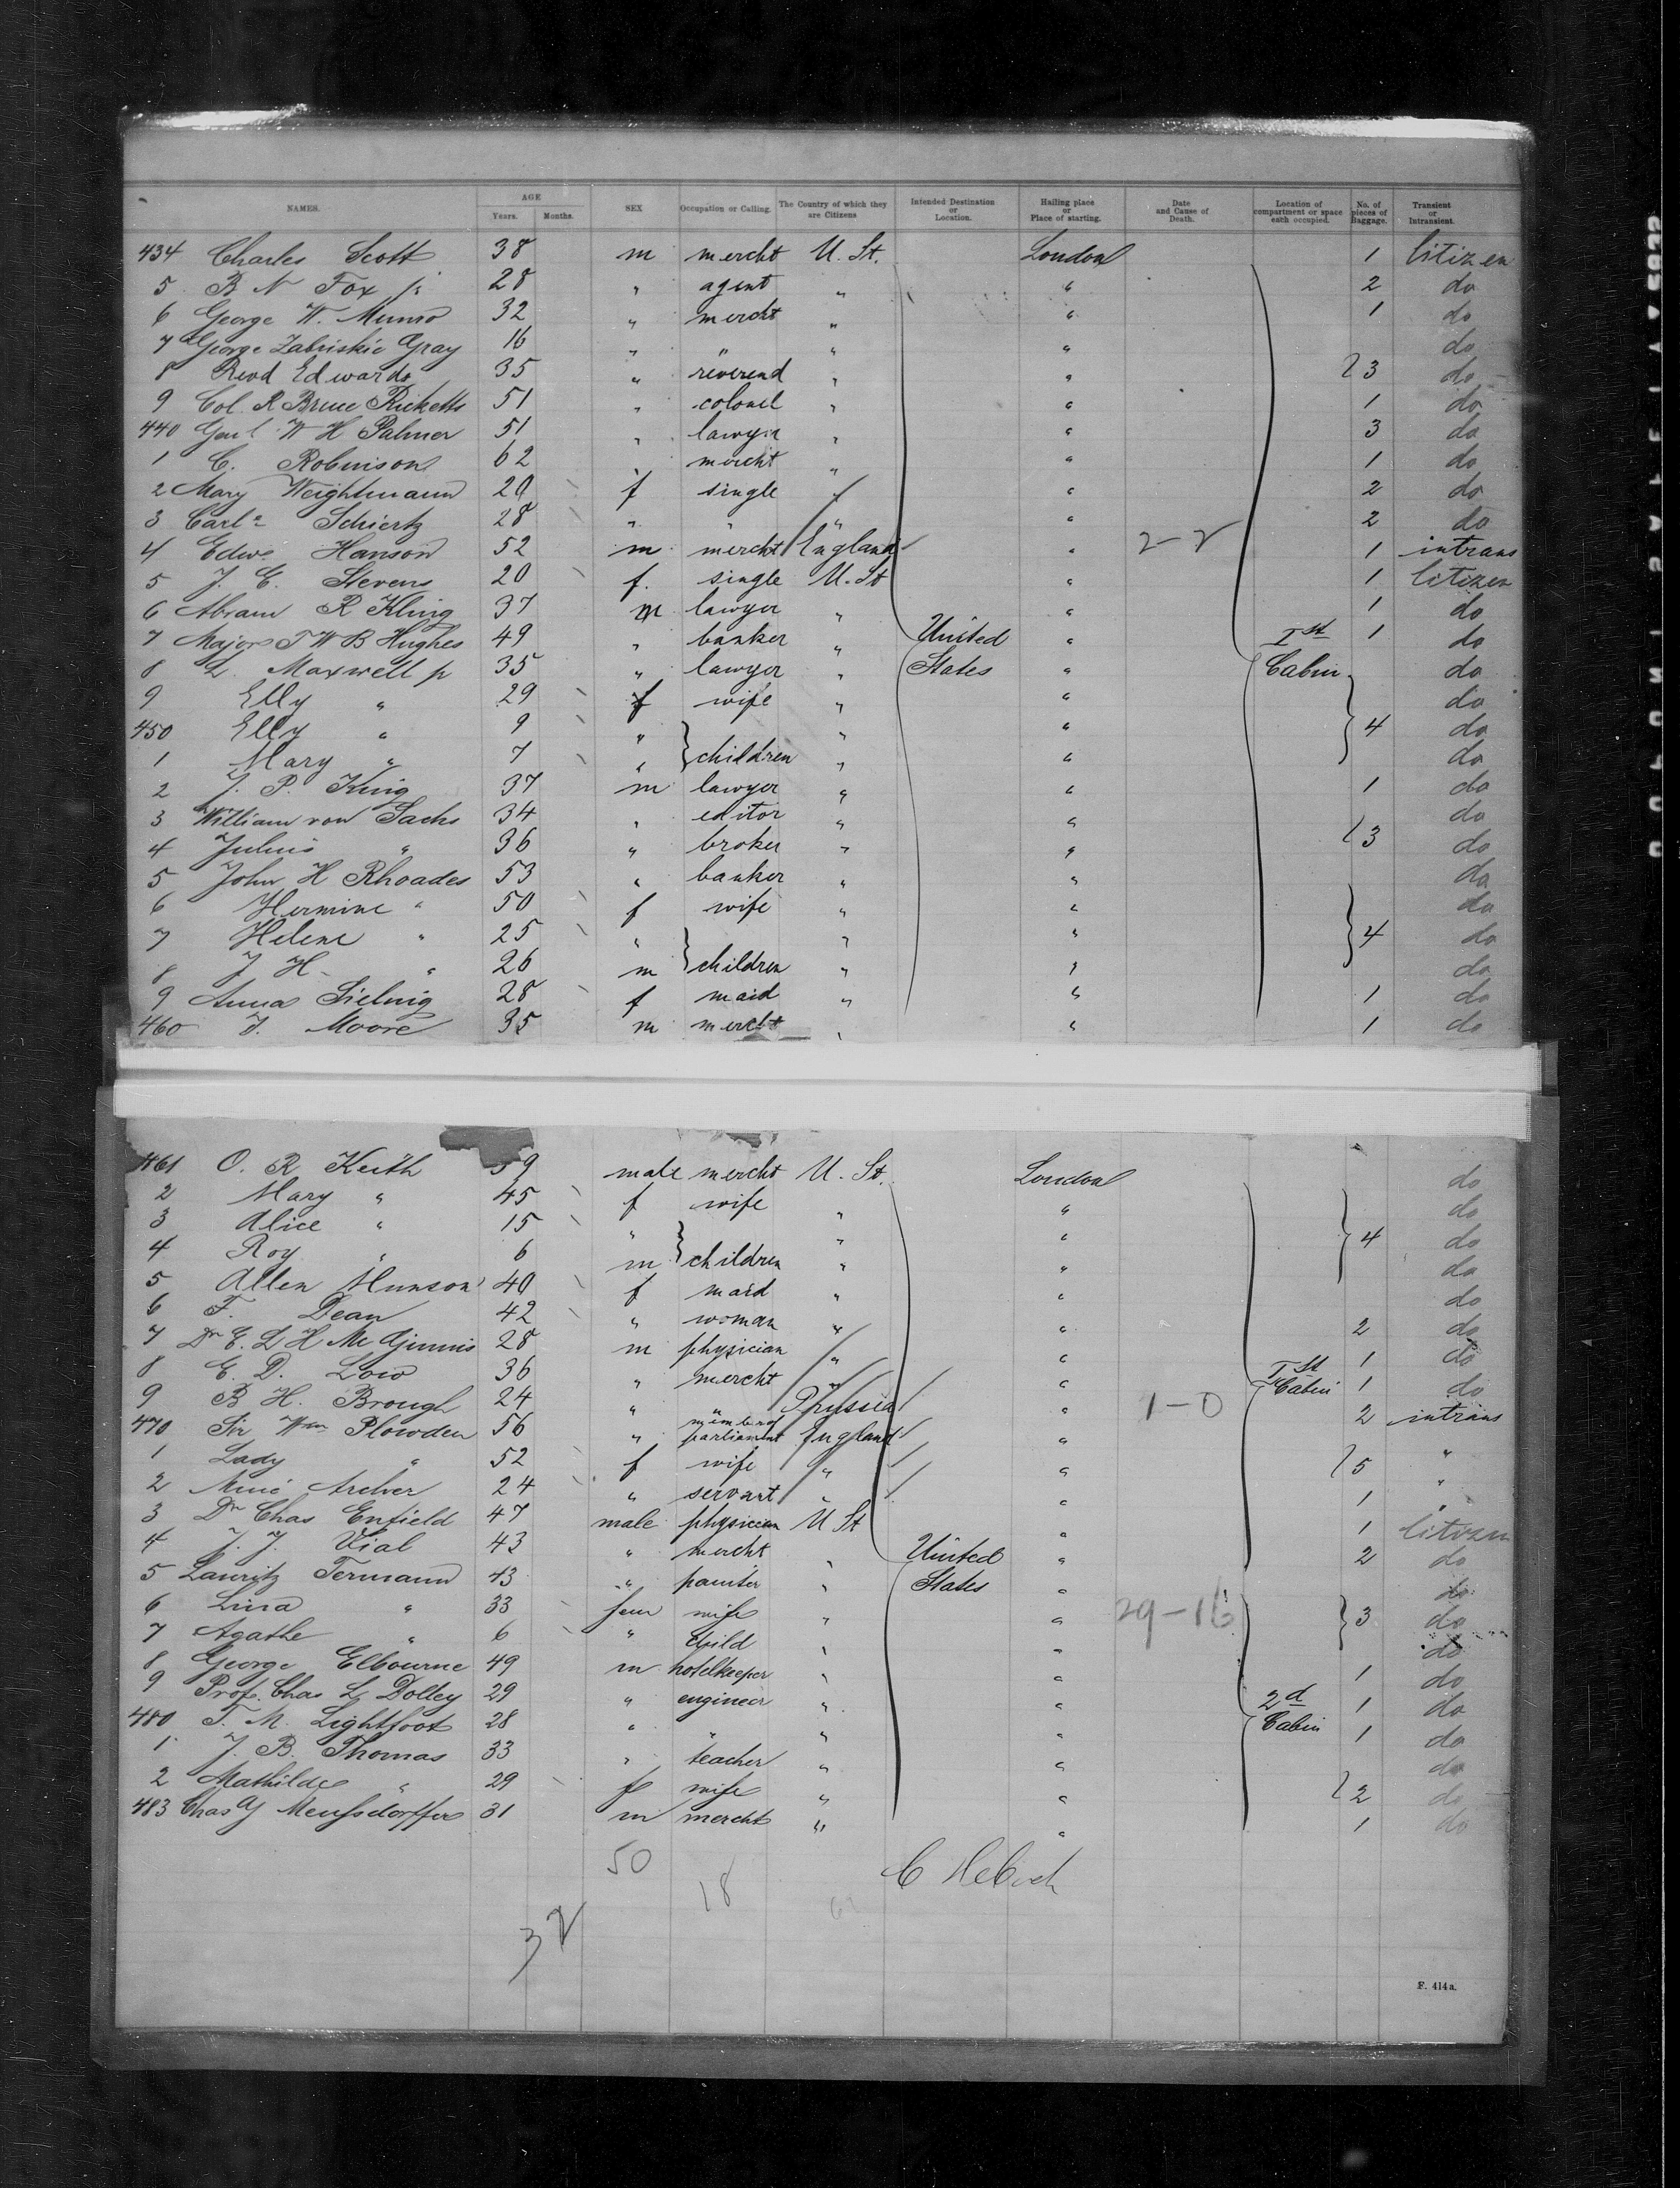 NAMES. AGE Years. Months. SEX Occupation or Calling. The Country of which they are Citizens Intended Destination or Location. Hailing place or Place of starting. Date and Cause of Death. Location of compartment or space each occupied. No. of pieces of Baggage. Transient or Intransient.
434 Charles Scott 38 m mercht U. St. London 1 Citizen
5 B N Fox jr 28 " agent " " 2 do
6 George W. Munro 32 " mercht " " 1 do
7 George Zabriskie Gray 16 " " " " do
8 Revd Edwards 35 " reverend " " 3 do
9 Col. R Bruce Ricketts 51 " colonel " " 1 do
440 Genl W H Palmer 51 " lawyer " " 3 do
1 C. Robinson 62 " mercht " " 1 do
2 Mary Weightmann 20 f single " " 2 do
3 Carla Schiertz 28 " " " " 2 do
4 Edw. Hanson 52 m mercht England " 2-2 1 intrans
5 J. E. Stevens 20 f. single U. St " 1 Citizen
6 Abram R Kling 37 m lawyer " " 1 do
7 Major T W B Hughes 49 " banker " United " Ist 1 do
8 L. Maxwell jr 35 " lawyer " States " Cabin do
9 Elly " 29 f wife " " do
450 Elly " 9 " " " 4 do
1 Mary " 7 " children " " do
2 J. P. King 37 m lawyer " " 1 do
3 William von Sachs 34 " editor " " do
4 Julius " 36 " broker " " 3 do
5 John H Rhoades 53 " banker " " do
6 Hermine " 50 f wife " " do
7 Helene " 25 " " " 4 do
8 J H " 26 m children " " do
9 Anna Sielnig 28 f maid " " 1 do
460 T. Moore 35 m mercht " " 1 do
461 O. R Keith 59 male mercht U. St. London do
2 Mary " 45 f wife " " do
3 Alice " 15 " " " 4 do
4 Roy " 6 m children " " do
5 Allen Munson 40 f maid " " do
6 F. Dean 42 " woman " " 2 do
7 Dr E. L H Mc Ginnis 28 m physician " " 1 do
8 E. D. Low 36 " mercht " " Ist Cabin 1 do
9 B H. Brough 24 " " Prussia " 1-0 2 intrans
470 Sir Wm Plowden 56 " member of parliament England " "
1 Lady " 52 f wife " " 5 "
2 Minie Archer 24 " servant " " 1 "
3 Dr Chas Enfield 47 male physician U St " 1 Citizen
4 J. J. Vial 43 " mercht " United " 2 do
5 Lauritz Termann 43 " painter " States " do
6 Lina " 33 fem wife " " 29-16 3 do
7 Agathe " 6 " child " " do
8 George Elbourne 49 m hotelkeeper " " 1 do
9 Prof. Chas L Dolley 29 " engineer " " 2d 1 do
480 T. M. Lightfoot 28 " " " " Cabin 1 do
1 J. B. Thomas 33 " teacher " " do
2 Mathilde " 29 f wife " " 2 do
483 Chas G Meussdorffer 31 m mercht " " 1 do
50
18
32
F. 414a.